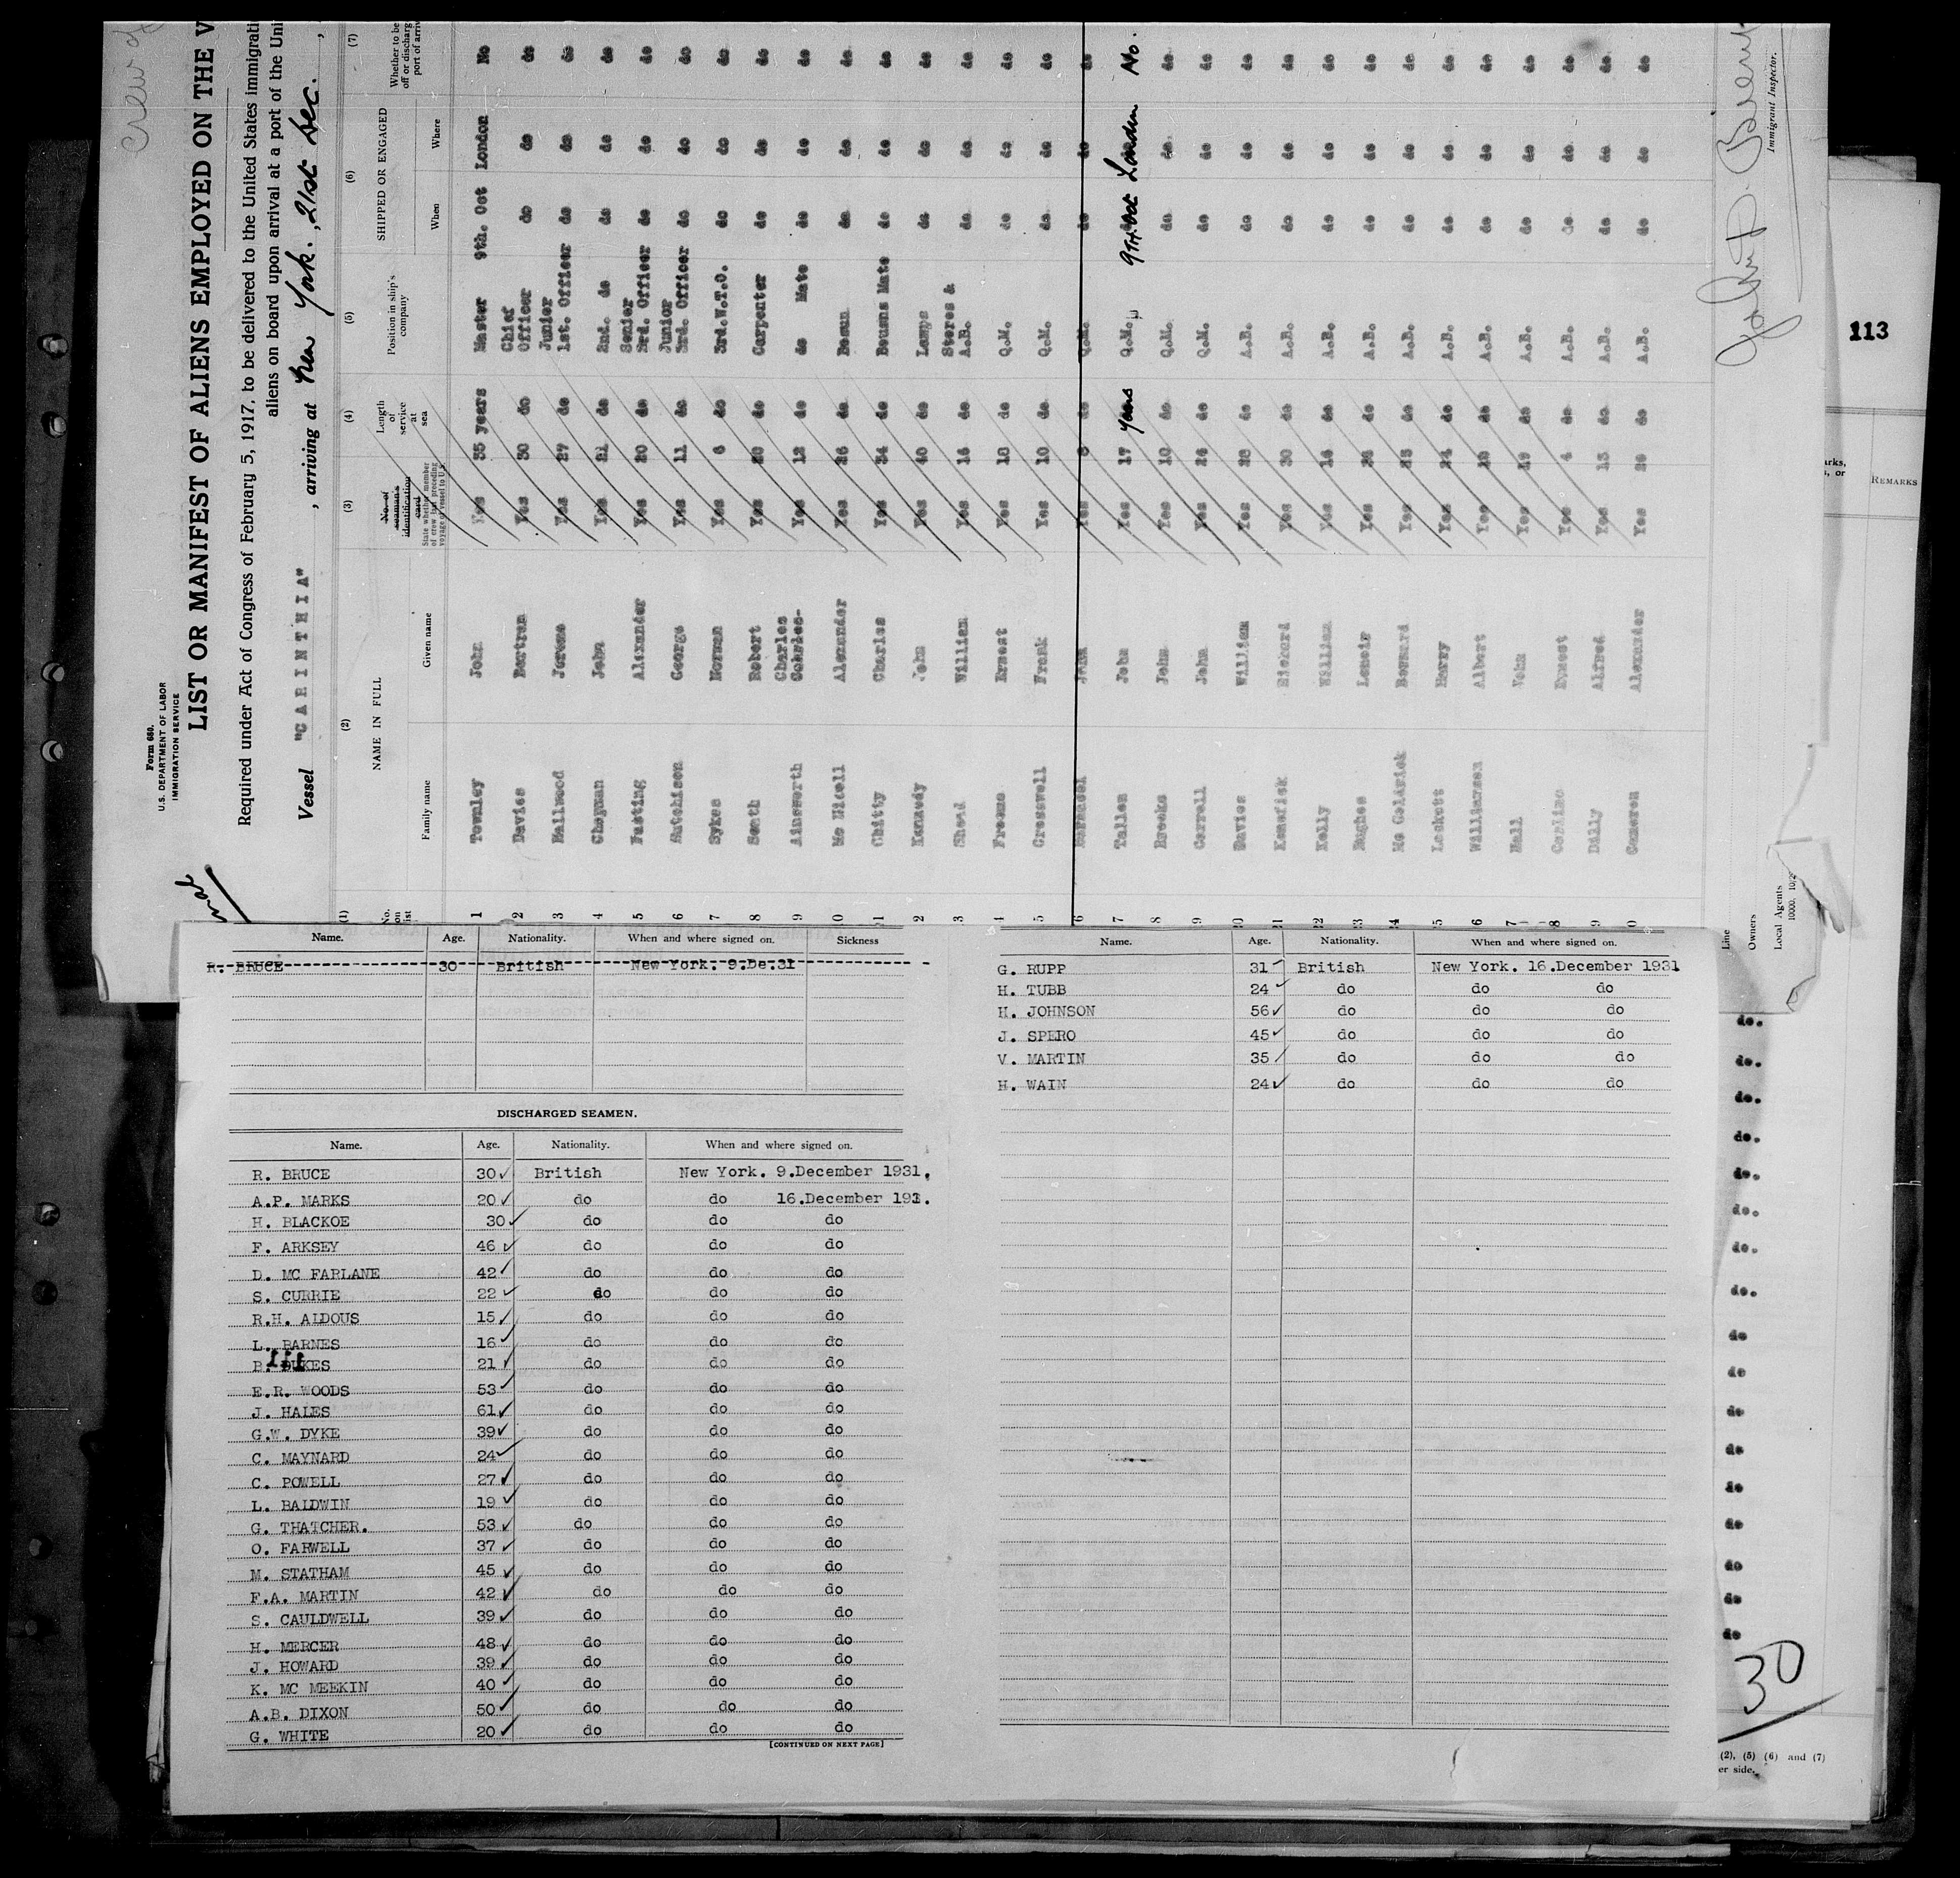 Form 680.
U.S. DEPARTMENT OF LABOR
IMMIGRATION SERVICE
Crew of
LIST OR MANIFEST OF ALIENS EMPLOYED ON THE V
Required under Act of Congress of February 5, 1917, to be delivered to the United States immigrati
aliens on board upon arrival at a port of the Uni
Vessel "CARINTHIA" , arriving at New York. , 21st Dec. ,
(1) (2) (3) (4) (5) (6) (7)
No. on list NAME IN FULL No. of seaman's identification card Length of service at sea Position in ship's company SHIPPED OR ENGAGED Whether to be
off or discharg
port of arriv
State whether member of crew last preceding voyage of vessel to U.S.
Family name Given name When Where
1 Townley John Yes 35 years Master 9th. Oct London No
2 Davies Bertram Yes 30 do Chief Officer do do do
3 Hallwood Jerome Yes 27 do Junior 1st. Officer do do do
4 Chapman John Yes 21 do 2nd. do do do do
5 Fasting Alexander Yes 20 do Senior 3rd. Officer do do do
6 Hutchison George Yes 11 do Junior 3rd. Officer do do do
7 Sykes Norman Yes 6 do 3rd.W.T.O. do do do
8 Seath Robert Yes 20 do Carpenter do do do
9 Ainsworth Charles Charles- Yes 12 do do Mate do do do
0 Mc Nicoll Alexander Yes 26 do Bosun do do do
1 Chitty Charles Yes 34 do Bosuns Mate do do do
2 Kennedy John Yes 40 do Lamps do do do
3 Shead William Yes 16 do Stores & A.B. do do do
4 Freeme Ernest Yes 18 do Q.M. do do do
5 Cresswell Frank Yes 10 do Q.M. do do do
6 John Yes 8 do Q.M. do do do
7 Tallon John Yes 17 Years Q.M. 9TH. Oct London No.
8 Brooks John Yes 10 do Q.M. do do do
9 Carroll John Yes 26 do Q.M. do do do
20 Davies William Yes 28 do A.B. do do do
21 Kenefick Richard Yes 30 do A.B. do do do
22 Kelly William Yes 16 do A.B. do do do
3 Hughes Yes do A.B. do do do
4 Mc Colarick Bernard Yes do A.B. do do do
5 Leckott Harry Yes 24 do A.B. do do do
6 Williamson Albert Yes do A.B. do do do
7 Hall John Yes do A.B. do do do
8 Ernest Yes 4 do A.B. do do do
9 Dilly Alfred Yes 13 do A.B. do do do
0 Cameron Alexander Yes 29 do A.B. do do do
Immigrant Inspector.
Line
Owners
Local Agents
113
arks,
, or
REMARKS
Name. Age. Nationality. When and where signed on. Sickness
R. BRUCE 30 British New York. 9.De.31
DISCHARGED SEAMEN.
Name. Age. Nationality. When and where signed on.
R. BRUCE 30 British New York. 9.December 1931.
A.P. MARKS 20 do do 16.December 193.
H. BLACKOE 30 do do do
F. ARKSEY 46 do do do
D. MC FARLANE 42 do do do
S. CURRIE 22 do do do
R.H. ALDOUS 15 do do do
L. BARNES 16 do do do
111
B. DUKES 21 do do do
E.R. WOODS 53 do do do
J. HALES 61 do do do
G.W. DYKE 39 do do do
C. MAYNARD 24 do do do
C. POWELL 27 do do do
L. BALDWIN 19 do do do
G. THATCHER. 53 do do do
O. FARWELL 37 do do do
M. STATHAM 45 do do do
F.A. MARTIN 42 do do do
S. CAULDWELL 39 do do do
H. MERCER 48 do do do
J. HOWARD 39 do do do
K. MC MEEKIN 40 do do do
A.B. DIXON 50 do do do
G. WHITE 20 do do do
[CONTINUED ON NEXT PAGE]
Name. Age. Nationality. When and where signed on.
G. RUPP 31 British New York. 16.December 1931
H. TUBB 24 do do do
H. JOHNSON 56 do do do
J. SPERO 45 do do do
V. MARTIN 35 do do do
H. WAIN 24 do do do
do.
do.
do.
do.
do.
do.
do.
do.
do
do
do
do
do
do
do
do
do
30
(2), (5) (6) and (7)
er side.